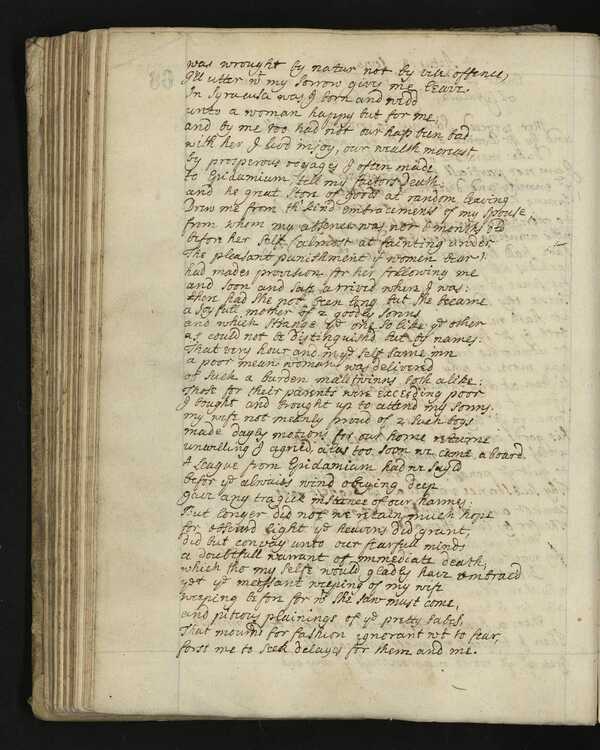 was wrought by natur not by vile offence,
Ile utter wt my sorrow give me leave.
In Syracusa was I born and wedd
unto a woman happy but for me,
and by me too had not our hap been bad
with her I livd in joy, our wealth increast,
by prosperous voyages I often made
to Epidamium, till my factors Death
and he great store of goods at random leaving
Drew me from th' kind embracements of my spouse,
from whom my absence was not 6 months old
before her self (almost at fainting under
The pleasant punishment yt women bear)
had mades provision for her following me
and soon and safe arrived where I was:
there had she not been long but she became
a joyfull mother of 2 goodly sonns
and which strange ye one so like ye other
as could not be distinguishd but by names.
That very hour and in ye self same inn
a poor mean woman was delivered
of such a burden male twinns both alike:
Those for their parents were exceeding poor
I bought and brought up to attend my sonns.
my wife not meanly proud of 2 such boys
made dayly motions for our home returne
unwilling I agreed alas too soon we came a board.
A league from Epidamium had we sayld
before ye alwaies wind obeying deep
gave any tragick instance of our harmes:
But longer did not we retain much hope
for obscurd light ye heavens did grant,
did but convay unto our fearfull minds
a doubtfull warrant of immediate death,
which tho my selfe would gladly have embracd
yet ye incessant weeping of my wife
weeping before for wt she saw must come,
and piteous plainings of ye pretty babes,
That mournd for fashion ignorant wt to fear,
forst me to seek delayes for them and me.